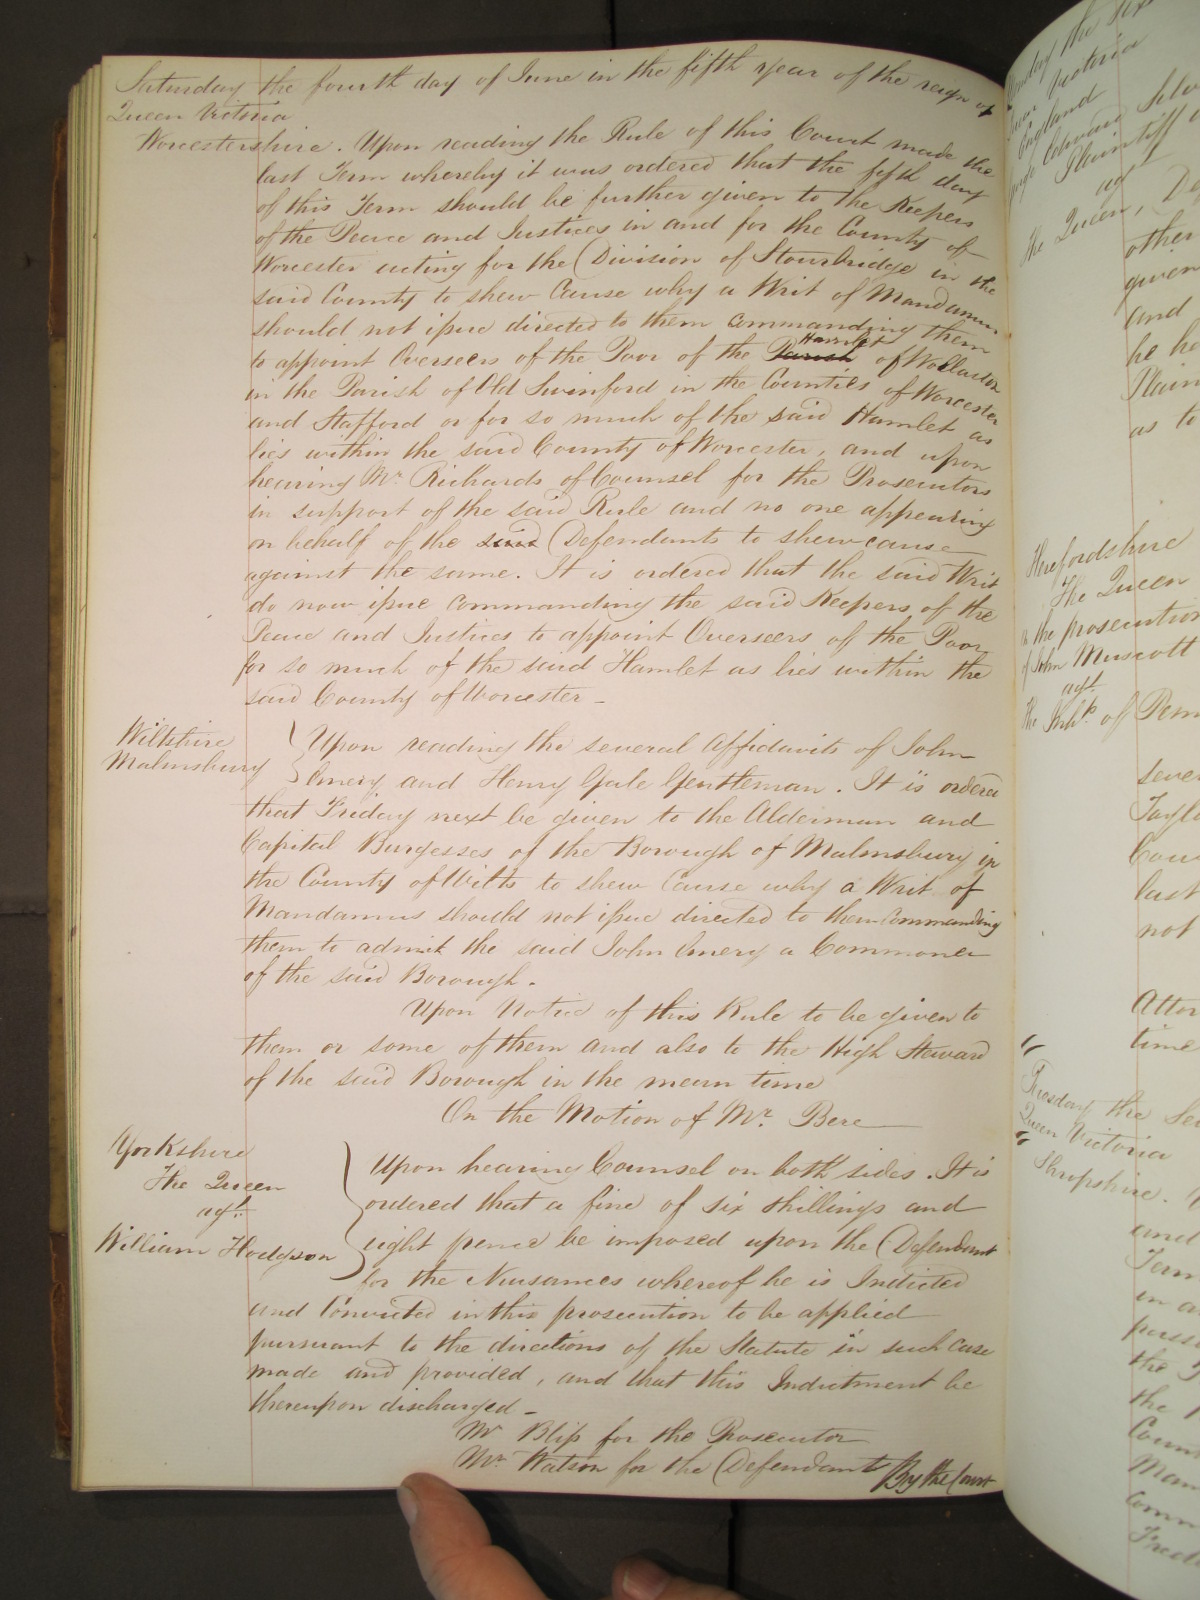 Saturday the fourth day of June in the fifth year of the reign of
Queen Victoria
Worcestershire. Upon reading the Rule of this Court made the
last Term whereby it was ordered that the fifth day
of this Term should be further given to the Keepers
of the Peace and Justices in and for the County of
Worcester acting for the Division of Stourbridge in the
said County to shew Cause why a Writ of Mandamus
should not issue directed to them commanding them
Hamlet
to appoint Overseers of the Poor of the Parish of Wollaston
in the Parish of Old Swinford in the Counties of Worcester
and Stafford or for so much of the said Hamlet as
lies within the said County of Worcester, and upon
hearing Mr. Richards of Counsel for the Prosecutors
in support of the said Rule and no one appearing
on behalf of the said Defendants to shew cause
against the same. It is ordered that the said Writ
do now issue commanding the said Keepers of the
Peace and Justices to appoint Overseers of the Poor
for so much of the said Hamlet as lies within the
said County of Worcester
Wiltshire
Malmsbury
Upon reading the several Affidavits of John
Emery and Henry Gale Gentleman. It is ordered
that Friday next be given to the Alderman and
Capital Burgesses of the Borough of Malmsbury in
the County of Wilts to shew Cause why a Writ of
Mandamus should not issue directed to them commanding
them to admit the said John Emery a Commoner
of the said Borough.
Upon Notice of this Rule to be given to
them or some of them and also to the High Steward
of the said Borough in the mean time
On the Motion of Mr. Bere
Yorkshire
The Queen
agt.
William Hodgson
Upon hearing Counsel on both sides. It is
ordered that a fine of six shillings and
eight pence be imposed upon the Defendant
for the Nuisances whereof he is Indicted
and Convicted in this prosecution to be applied
pursuant to the directions of the Statute in such case
made and provided, and that this Indictment be
thereupon discharged
Mr Bliss for the Prosecutor
Mr. Watson for the Defendant By the Court
Queen Victoria
England
Plaintiff
agt
the Queen,
other
given
and
he
as to
Herefordshire
The Queen
in the prosecution
of John Muscott
agt.
the Inhts. of
last
not
time
Tuesday the
Queen Victoria
Shropshire.
and
Term
in a
the
the